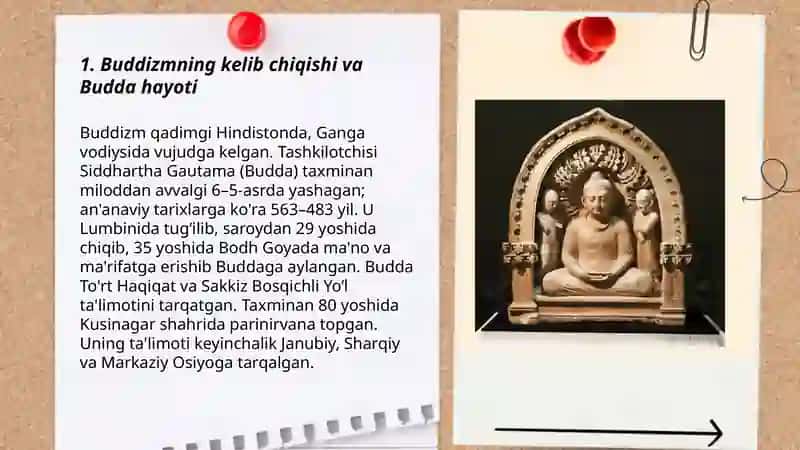 1. Buddizmning kelib chiqishi va
Budda hayoti
Buddizm qadimgi Hindistonda, Ganga
vodiysida vujudga kelgan. Tashkilotchisi
Siddhartha Gautama (Budda) taxminan
miloddan avvalgi 6–5-asrda yashagan;
an'anaviy tarixlarga ko'ra 563–483 yil. U
Lumbinida tugʻilib, saroydan 29 yoshida
chiqib, 35 yoshida Bodh Goyada ma'no va
ma'rifatga erishib Buddaga aylangan. Budda
To'rt Haqiqat va Sakkiz Bosqichli Yoʻl
ta'limotini tarqatgan. Taxminan 80 yoshida
Kusinagar shahrida parinirvana topgan.
Uning ta'limoti keyinchalik Janubiy, Sharqiy
va Markaziy Osiyoga tarqalgan.